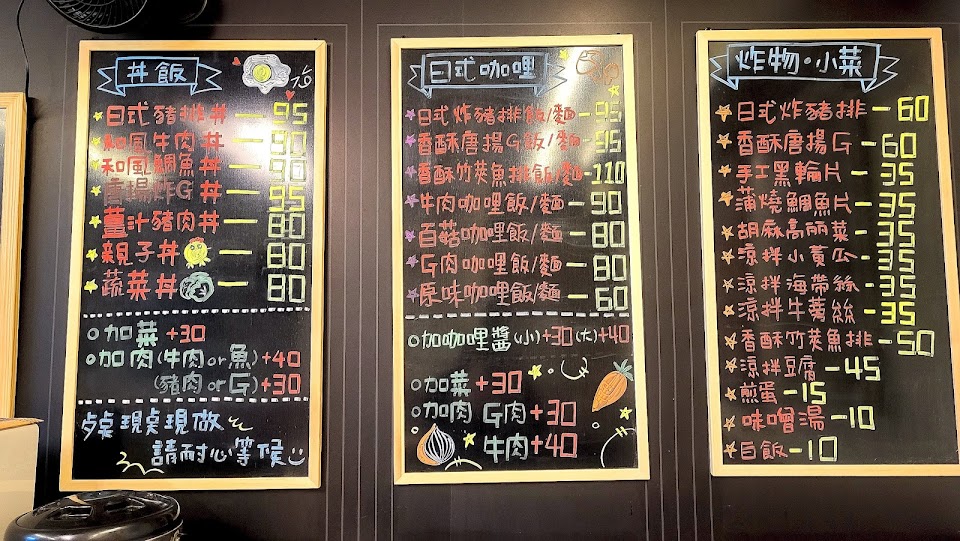 丼飯
日式豬排丼 — 95
和風牛肉丼 — 90
和風鯛魚丼 — 90
唐揚炸G丼 — 95
薑汁豬肉丼 — 80
親子丼 — 80
蔬菜丼 — 80
加菜+30
加肉(牛肉or魚)+40
(豬肉orG)+30
桌現桌現做
請耐心等候
日式咖哩
日式炸豬排飯/麵 — 95
香酥唐揚G飯/麵 — 95
香酥竹莢魚排飯/麵 — 110
牛肉咖哩飯/麵 — 90
百菇咖哩飯/麵 — 80
G肉咖哩飯/麵 — 80
原味咖哩飯/麵 — 60
加咖哩醬(小)+30(大)+40
加菜+30
加肉 G肉+30
牛肉+40
炸物·小菜
日式炸豬排 — 60
香酥唐揚G — 60
手工黑輪片 — 35
蒲燒鯛魚片 — 35
胡麻高麗菜 — 35
涼拌小黃瓜 — 35
涼拌海帶絲 — 35
涼拌牛蒡絲 — 35
香酥竹莢魚排 — 50
涼拌豆腐 — 45
煎蛋 — 15
味噌湯 — 10
白飯 — 10